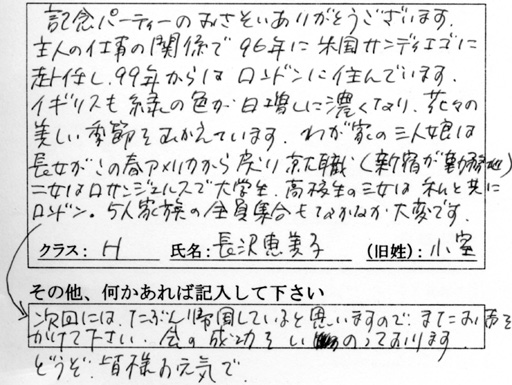 記念パーティーのおさそいありがとうございます.
主人の仕事の関係で96年に米国サンディエゴに
赴任し.99年からはロンドンに住んでいます.
イギリスも緑の色が日増しに濃くなり.花々の
美しい季節をむかえています.わが家の三人娘は
長女がこの春アメリカから戻り就職(新宿が勤務地)
二女はロサンジェルスで大学生.高校生の三女は私と共に
ロンドン。5人家族の全員集合もなかなか大変です.
クラス: H 氏名: 長沢恵美子 (旧姓): 小室
その他、何かあれば記入して下さい
次回には.たぶん帰国していると思いますので.またお声を
かけて下さい.会の成功をいのっております.
どうぞ.皆様お元気で.